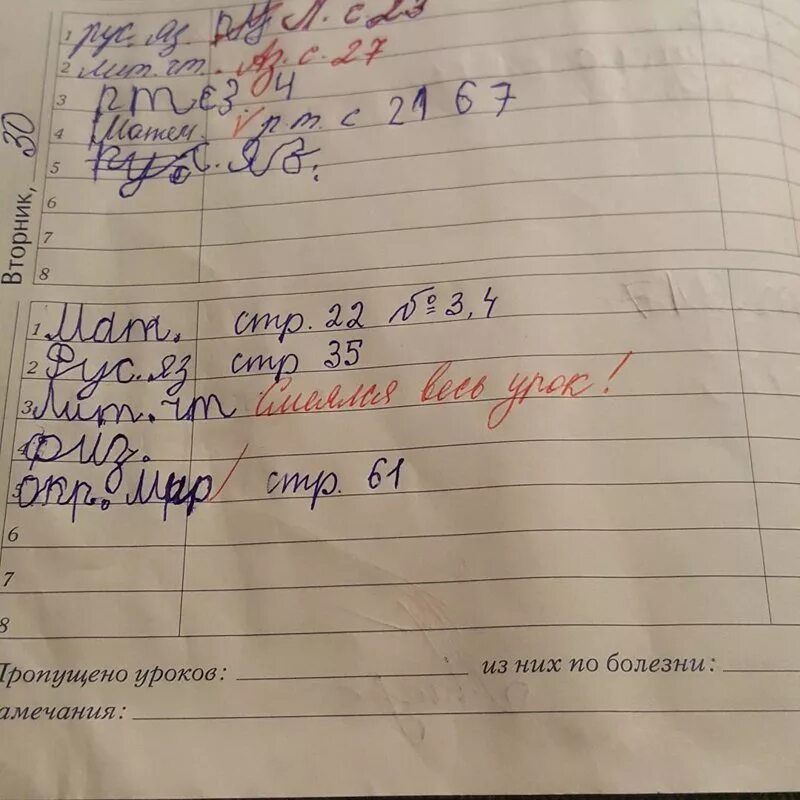 1 рус. яз. Л. с 23
2 Лит. чт. Аз. с. 27
3 р т с 3 4
4 Матем. √ р. т. с 21 6 7
5 рус. яз.
Вторник, 30
6
7
8
1 Мат. стр. 22 № 3, 4
2 Рус. яз стр 35
3 Лит. чт Смеялся весь урок!
4 физ.
5 окр. мир стр. 61
6
7
8
Пропущено уроков: из них по болезни:
амечания: